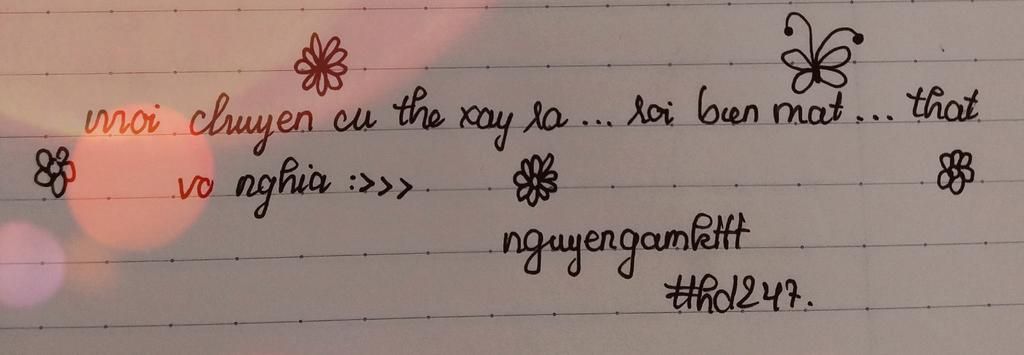 moi chuyen cu the xay ra... roi bien mat... that
vo nghia :>>>
nguyengamkttt
#hd247.